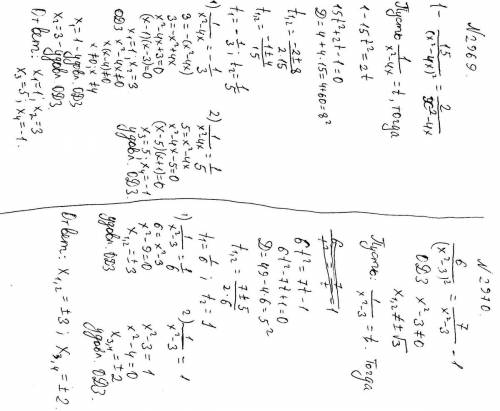 N 2969.
1 - 15/(x²-4x)² = 2/(x²-4x)
Пусть 1/(x²-4x) = t, тогда
1-15t² = 2t
15t²+2t-1=0
D=4+4·15=4+60=8²
t₁,₂ = (-2±8)/(2·15)
t₁,₂ = (-1±4)/15
t₁ = -1/3; t₂ = 1/5
1) 1/(x²-4x) = -1/3
3 = -(x²-4x)
3=-x²+4x
x²-4x+3=0
(x-1)(x-3)=0
x₁=1, x₂=3
ОДЗ x²-4x≠0
x(x-4)≠0
x≠0; x≠4
x=1 - удовл. ОДЗ
x₂=3 - удовл. ОДЗ
2) 1/(x²-4x) = 1/5
5=x²-4x
x²-4x-5=0
(x-5)(x+1)=0
x₃=5; x₄=-1
удовл. ОДЗ.
Ответ: x₁=1; x₂=3
x₃=5; x₄=-1.
N 2970.
6/(x²-3)² = 7/(x²-3) - 1
ОДЗ x²-3≠0
x₁,₂≠±√3
Пусть: 1/(x²-3) = t. Тогда
6t²=7t-1
6t²-7t+1=0
D=49-4·6=5²
t₁,₂ = (7±5)/(2·6)
t₁ = 1/6; t₂ = 1
1) 1/(x²-3) = 1/6
6=x²-3
x²-9=0
x₁,₂=±3
удовл ОДЗ
2) 1/(x²-3) = 1
x²-3=1
x²-4=0
x₃,₄=±2
удовл. ОДЗ.
Ответ: x₁,₂=±3; x₃,₄=±2.